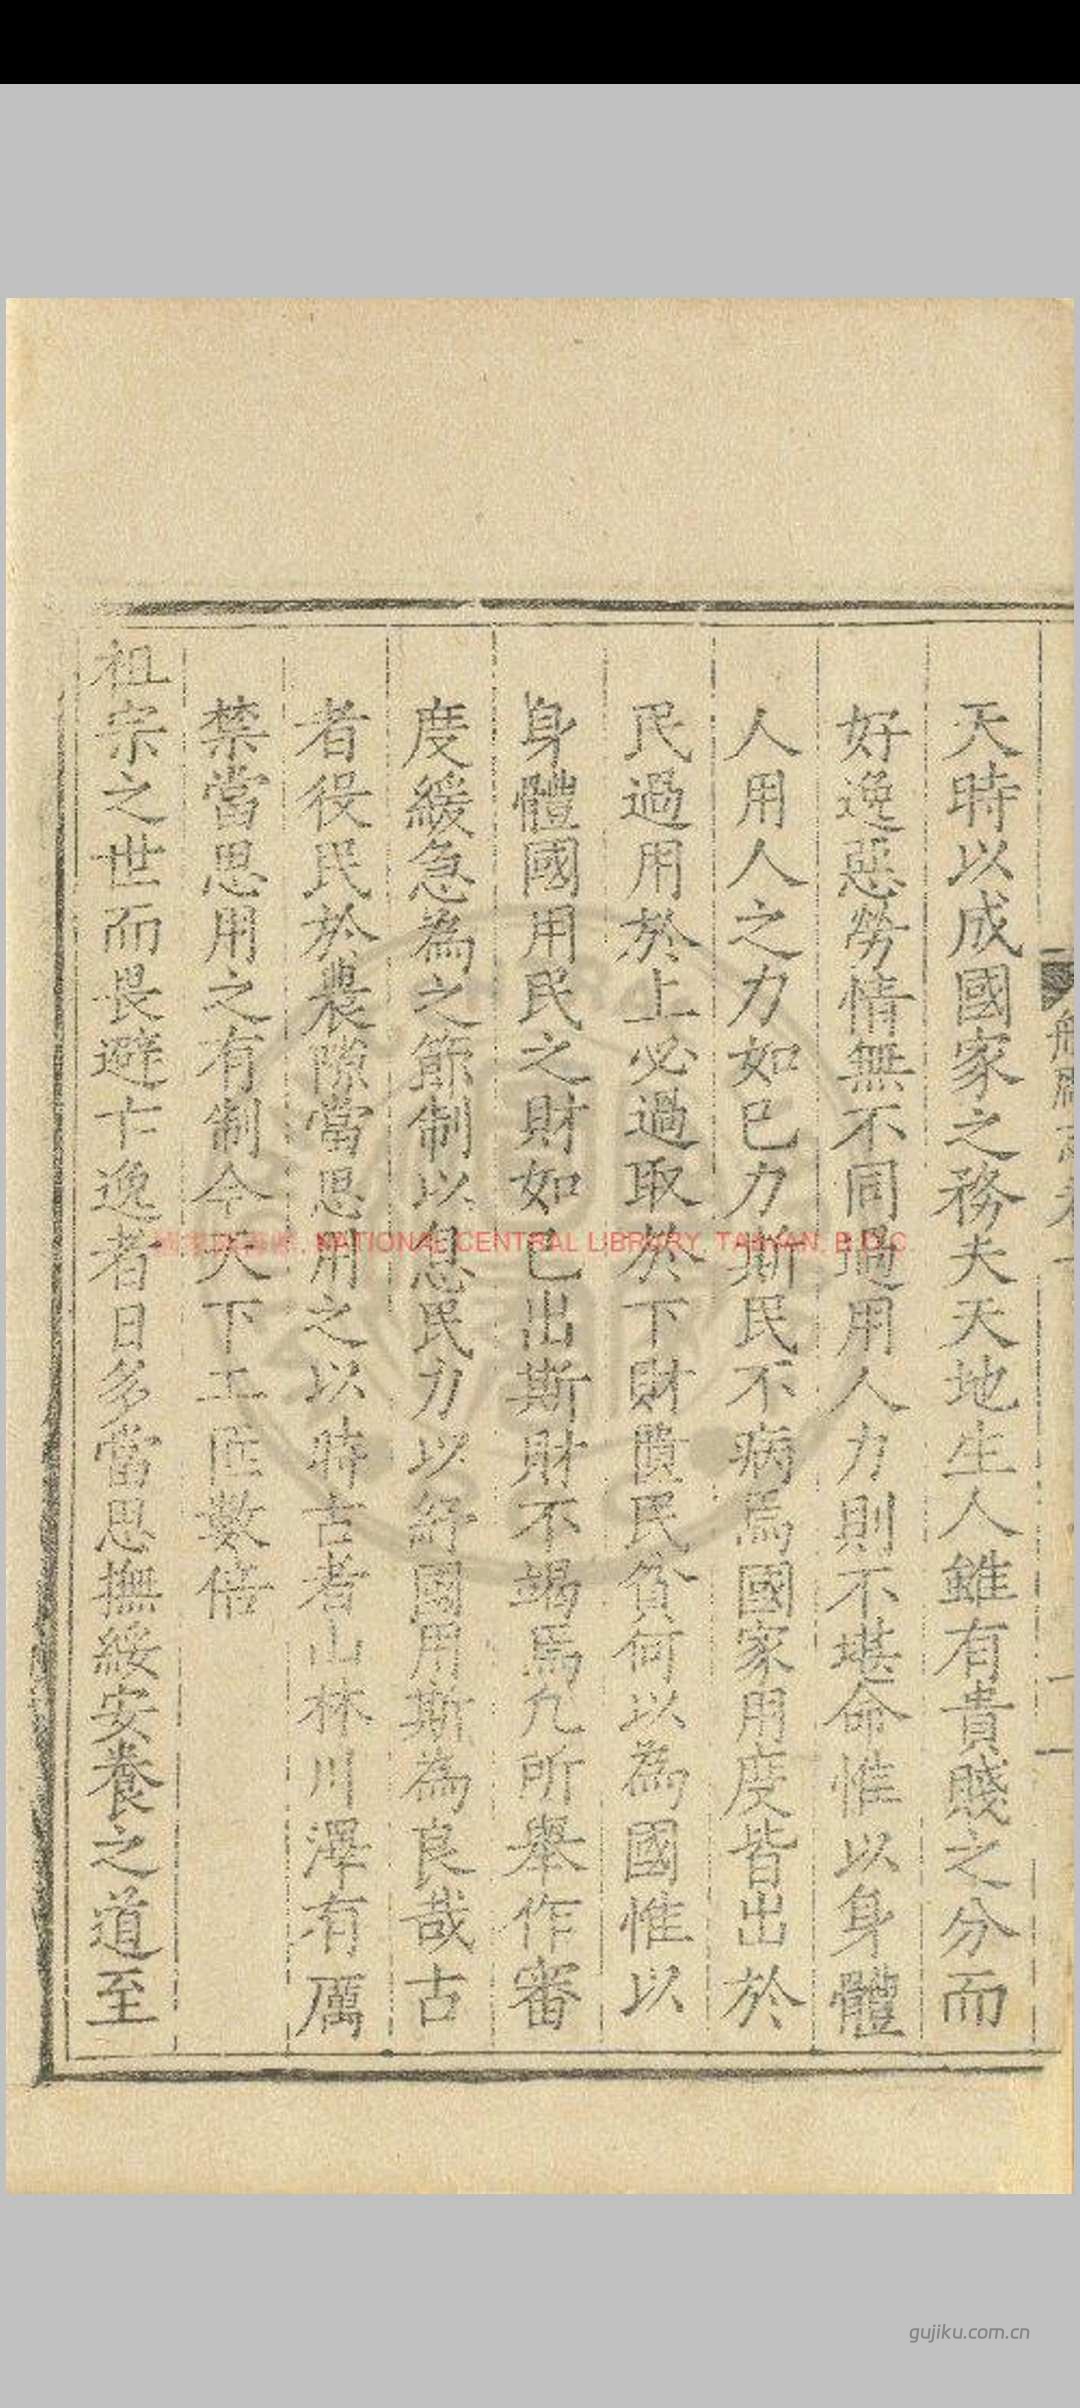 天時以成國家之務夫天地生人雖有貴賤之分而
好逸惡勞情無不同過用人力則不堪命惟以身體
人用人之力如已力斯民不病焉國家用度皆出於
民過用於上必過取於下財匱民貧何以為國惟以
身體國用民之財如已出斯財不竭焉凢所舉作審
度緩急為之節制以息民力以紓國用斯為良哉古
者役民於農隙當思用之以時古者山林川澤有厲
禁當思用之有制今天下工匠數倍
祖宗之世而畏避亡逸者日多當思撫綏安養之道至
NATIONAL CENTRAL LIBRARY, TAIWAN, R.O.C
gujiku.com.cn